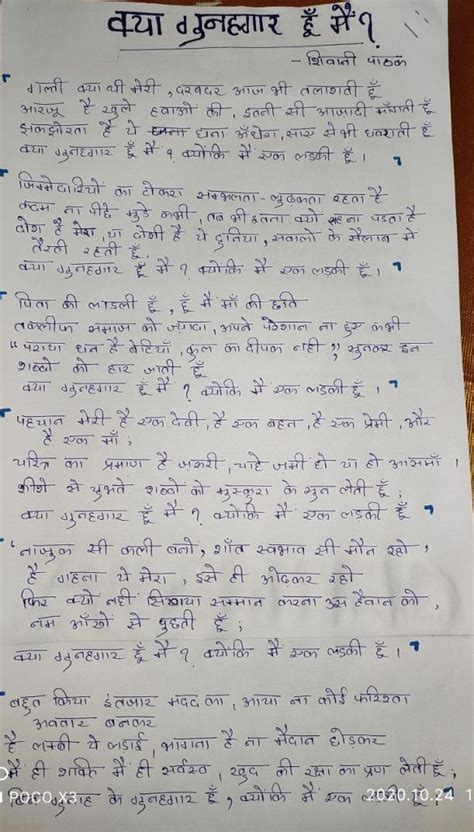 क्या गुनहगार हूँ मैं ?
- शिवानी पाठक
गलती क्या थी मेरी, दरबदर आज भी तलाशती हूँ
आरजू है खुले हवाओं की, इतनी सी आजादी माँगती हूँ
झकझोरता है ये घना अँधेरा, साए से भी घबराती हूँ
क्या गुनहगार हूँ मैं ? क्योंकि मैं एक लड़की हूँ ।
जिम्मेदारियों का टोकरा सम्भलता - लुढ़कता रहता है
कदम ना पीछे मुड़े कभी, तब भी इतना क्यों सहना पड़ता है
दोष है मेरा, या दोषी है ये दुनिया, सवालों के सैलाब में
तैरती रहती हूँ,
क्या गुनहगार हूँ मैं ? क्योंकि मैं एक लड़की हूँ ।
पिता की लाडली हूँ, हूँ मैं माँ की छवि
तकलीफ समाज को ज्यादा, अपने परेशान ना हुए कभी
"पराया धन है बेटियाँ, कुल का दीपक नही" सुनकर इन
शब्दों को हार जाती हूँ
क्या गुनहगार हूँ मैं ? क्योंकि मैं एक लड़की हूँ ।
पहचान मेरी है एक बेटी, है एक बहन, है एक प्रेमी, और
है एक माँ ;
चरित्र का प्रमाण है जरूरी, चाहे जमीं हो या हो आसमाँ ।
शीशे से चुभते शब्दों को मुस्कुरा के सुन लेती हूँ ;
क्या गुनहगार हूँ मैं ? क्योंकि मैं एक लड़की हूँ
'नाजुक सी कली बनो, शाँत स्वभाव सी मौन रहो '
है गहना ये मेरा, इसे ही ओढ़कर रहो
फिर क्यों नहीं सिखाया सम्मान करना उस हैवान को,
नम आँखों से पूछती हूँ ;
क्या गुनहगार हूँ मैं ? क्योंकि मैं एक लड़की हूँ ।
बहुत किया इंतजार मदद का, आया ना कोई फरिश्ता
अवतार बनकर
है लम्बी ये लड़ाई, भागना है ना मैदान छोड़कर
मैं ही शक्ति मैं ही सर्वस्व, खुद की रक्षा का प्रण लेती हूँ ;
के गुनहगार हूँ, क्योंकि मैं एक लड़की हूँ
POCO X3
2020.10.24 1